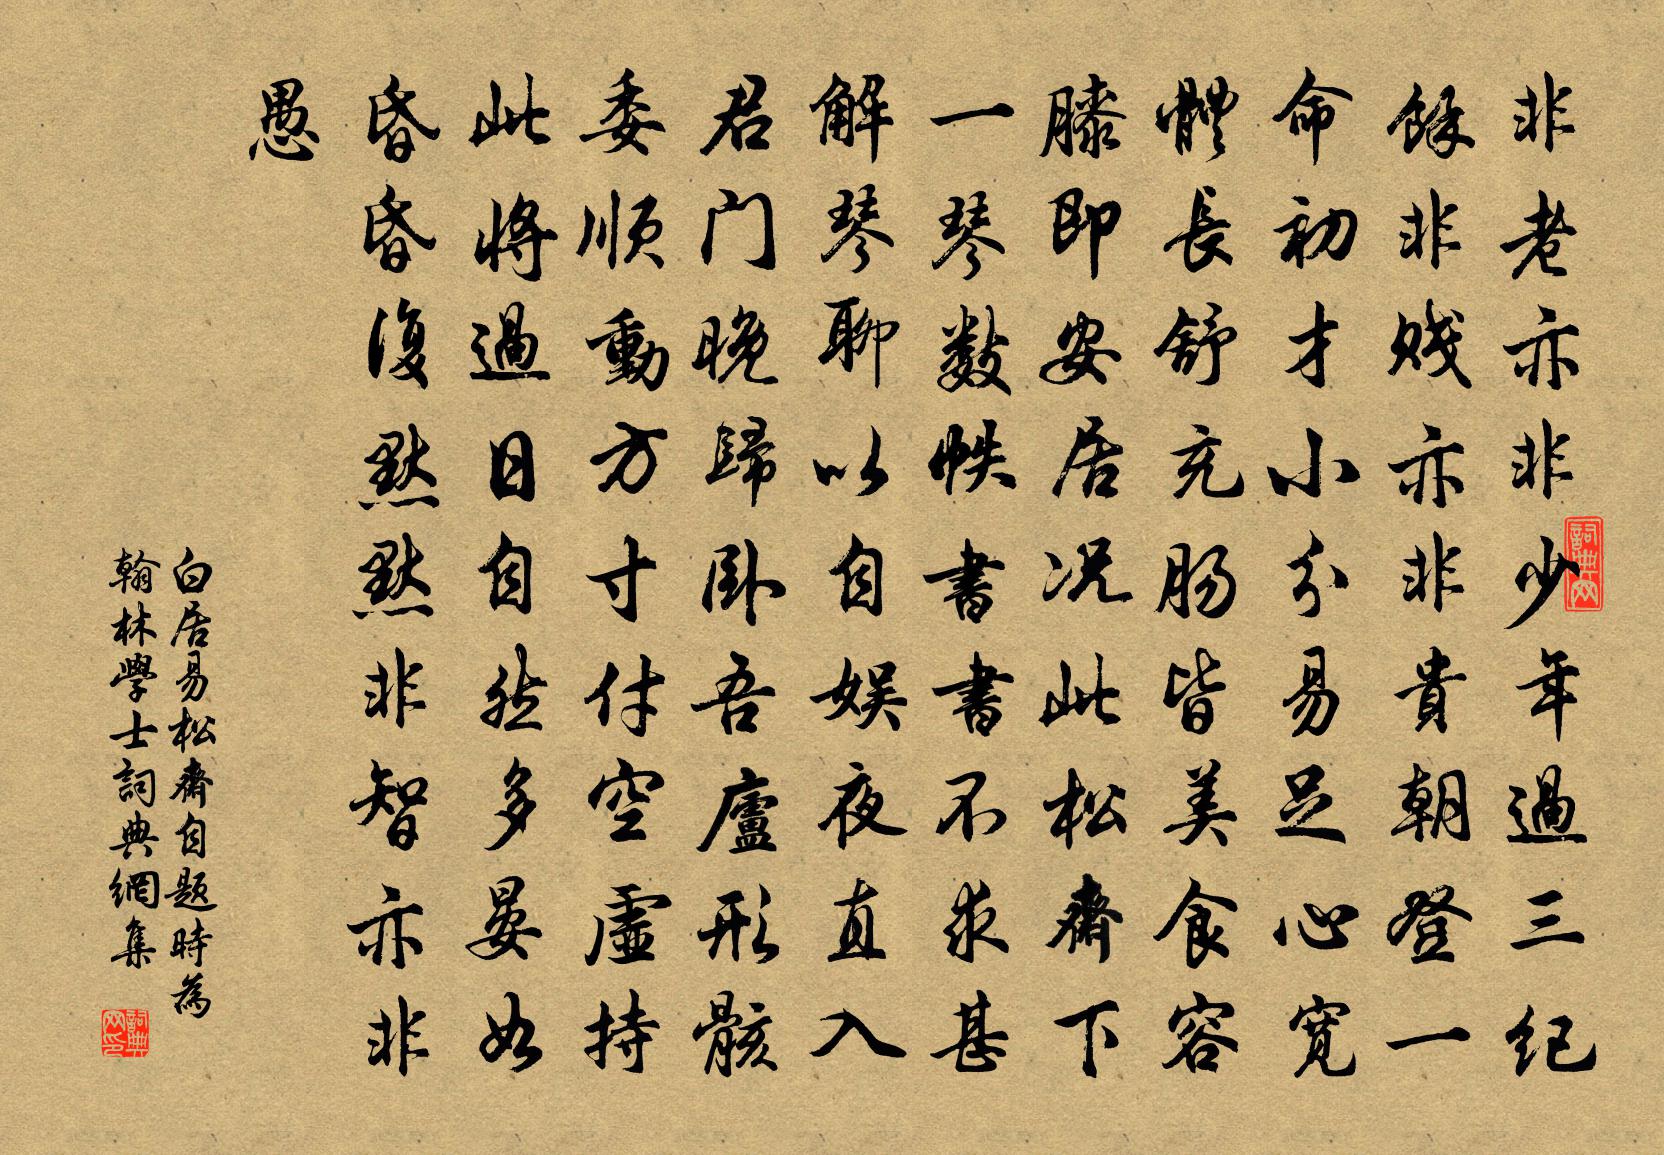 非老亦非少年過三紀
餘非賤亦非貴朝登一
命初才小分易足心寬
體長舒充肠皆美食容
膝即安居况此松齋下
一琴數帙書書不求甚
解琴聊以自娱夜直入
君门晚歸卧吾廬形骸
委順動方寸付空虛持
此將過日自然多晏如
昏昏復默默非智亦非
愚
白居易松齋自题時為
翰林學士詞典網集
詞典网
詞典网印